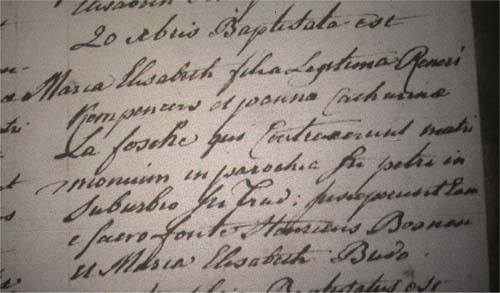 20 xbris Baptisata est
Maria Elisabeth filia Legitima Reneri
Kompeneers et joanna Catharinae
La fosche qui Contraxerunt matri
monium in parochia Sti petri in
Suburbio Sti Trud: susceperunt Eam
e sacro fonte Henricus Bosman
et Maria Elisabeth Budo.
Baptisatus est